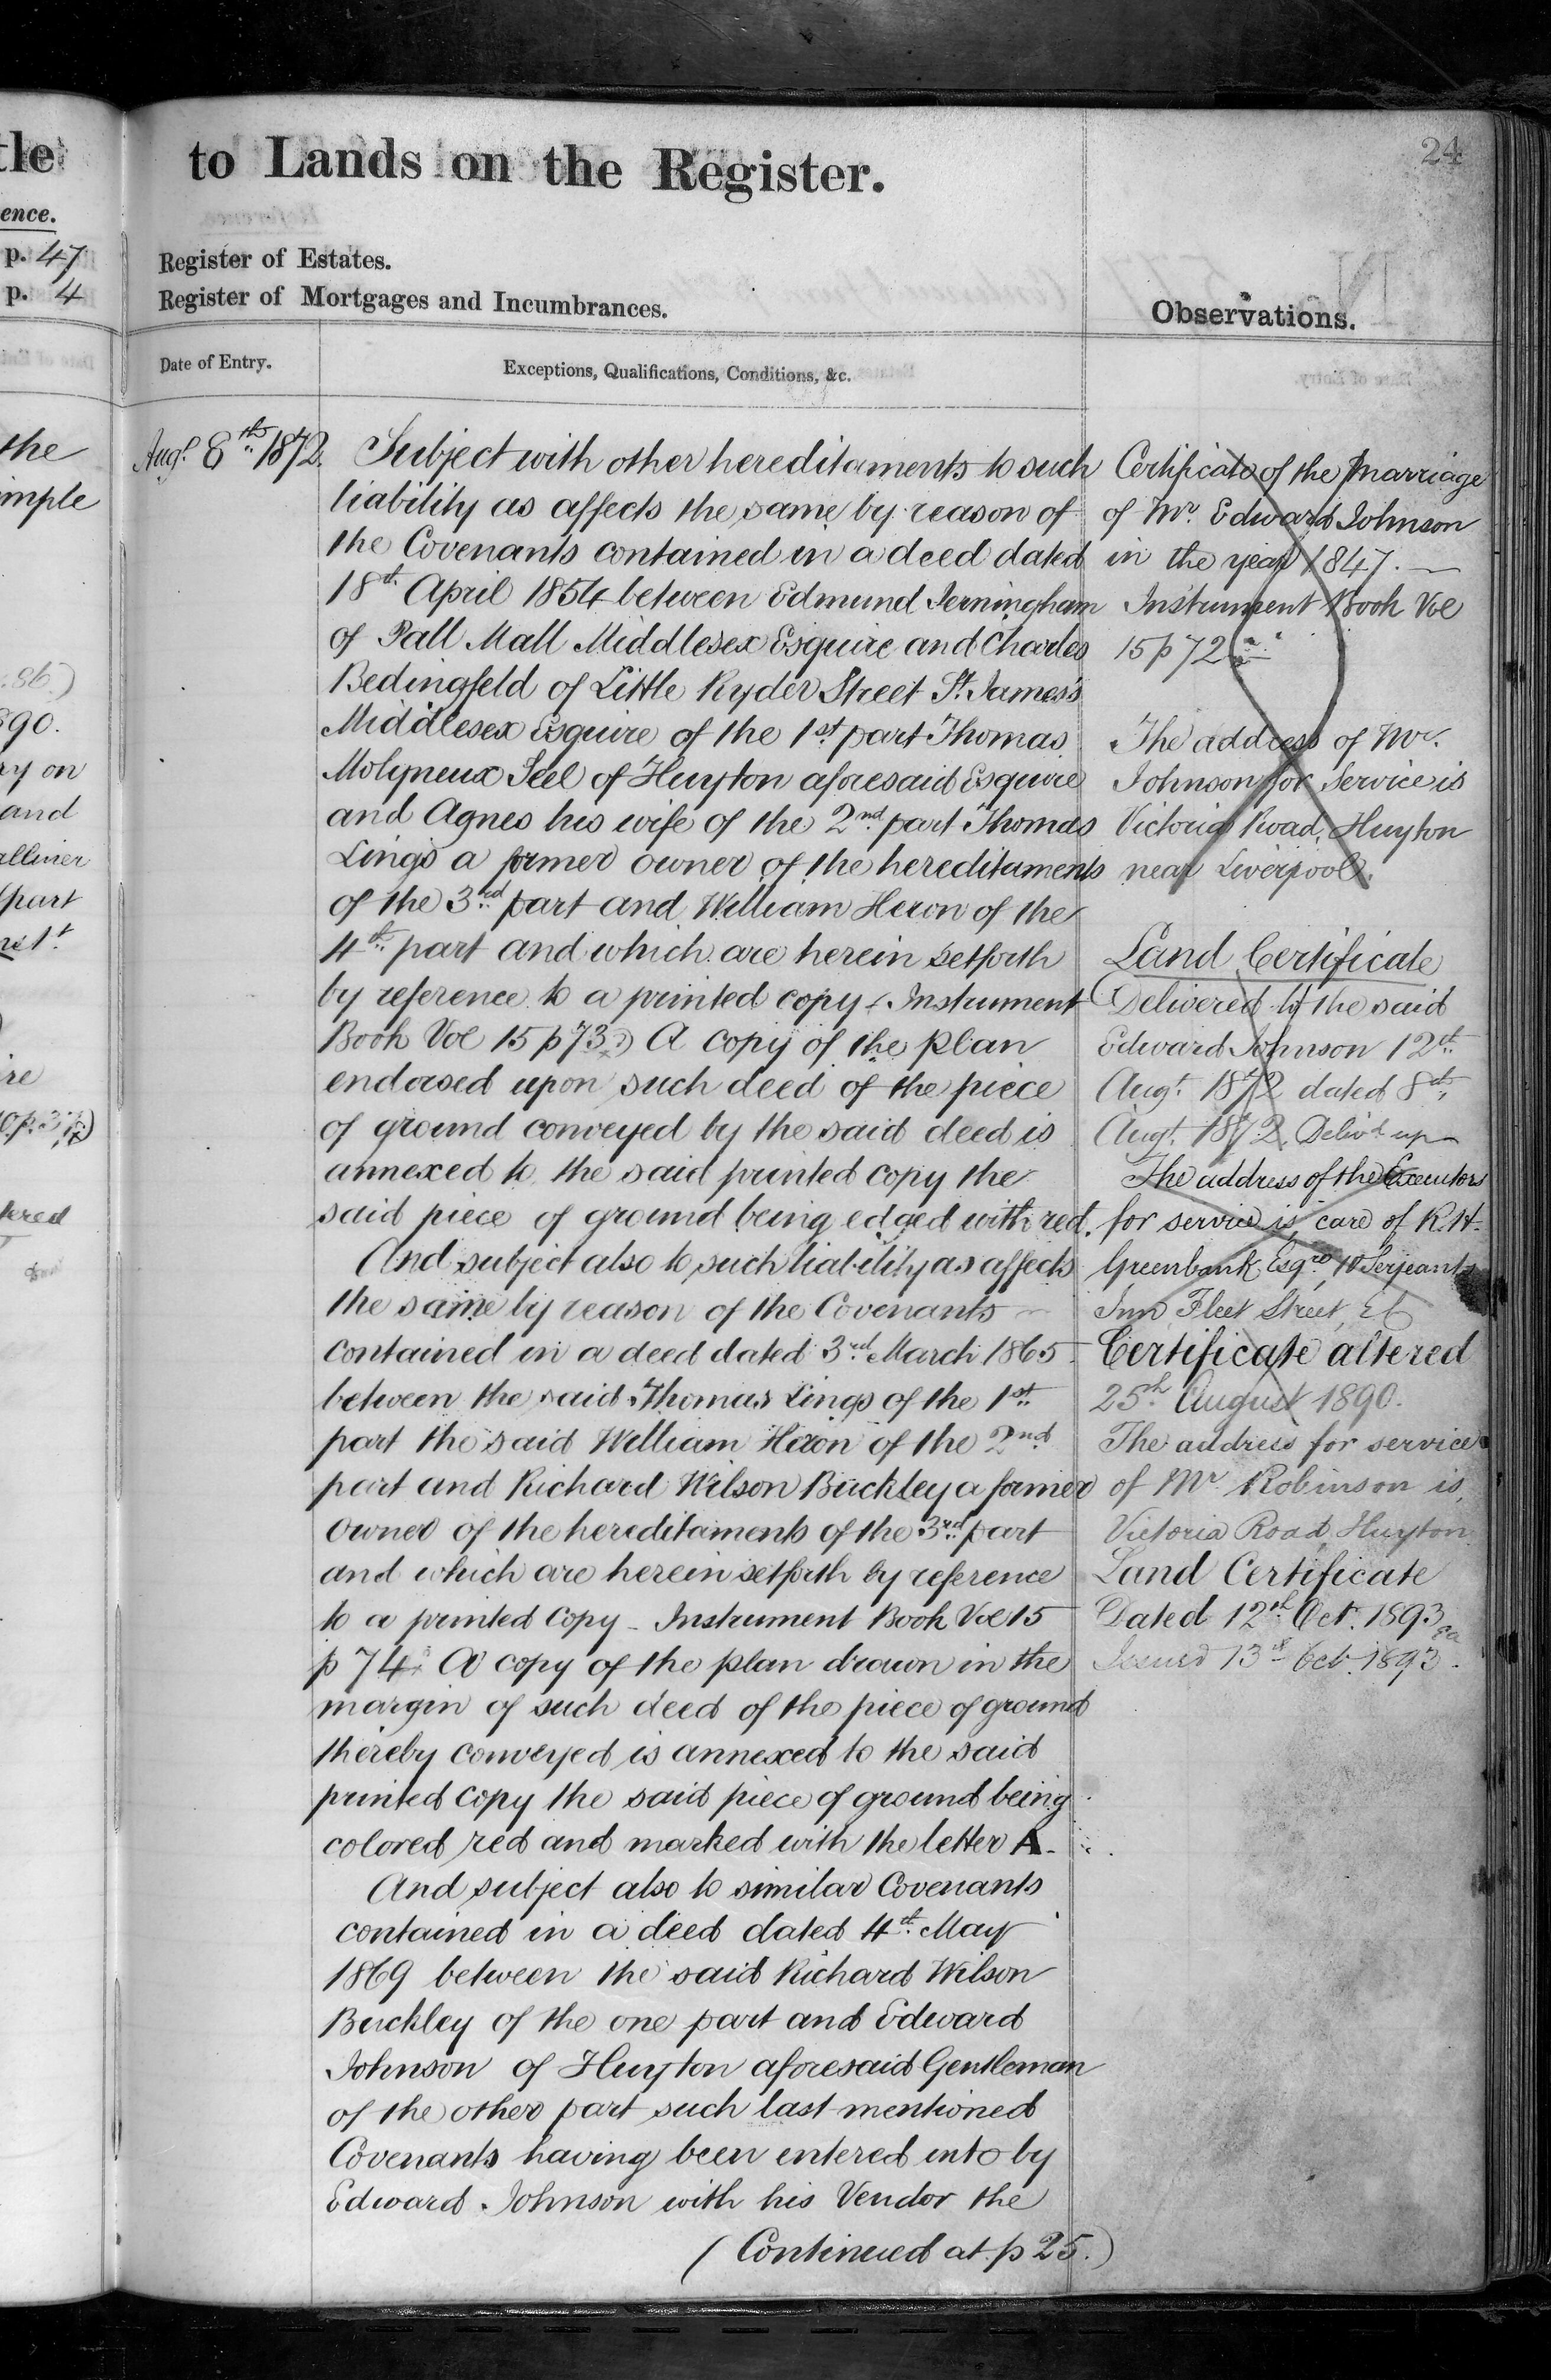 24
to Lands on the Register.
Register of Estates.
Register of Mortgages and Incumbrances.
Observations.
Date of Entry.
Exceptions, Qualifications, Conditions, &c.
Augt. 8th 1872.
Subject with other hereditaments to such
liability as affects the same by reason of
the Covenants contained in a deed dated
18th April 1854 between Edmund Jerningham
of Pall Mall Middlesex Esquire and Charles
Bedingfeld of Little Ryder Street St. James's
Middlesex Esquire of the 1st part Thomas
Molyneux Seel of Huyton aforesaid Esquire
and Agnes his wife of the 2nd part Thomas
Lings a former owner of the hereditaments
of the 3rd part and William Hixon of the
4th part and which are herein setforth
by reference to a printed copy (Instrument
Book Vol 15 p 73.) A copy of the plan
endorsed upon such deed of the piece
of ground conveyed by the said deed is
annexed to the said printed copy the
said piece of ground being edged with red.
And subject also to such liability as affects
the same by reason of the Covenants
contained in a deed dated 3rd March 1865
between the said Thomas Lings of the 1st
part the said William Hixon of the 2nd
part and Richard Wilson Buckley a former
owner of the hereditaments of the 3rd part
and which are herein setforth by reference
to a printed copy - Instrument Book Vol 15
p 74. A copy of the plan drawn in the
margin of such deed of the piece of ground
thereby conveyed is annexed to the said
printed copy the said piece of ground being
colored red and marked with the letter A.
And subject also to similar Covenants
contained in a deed dated 4th May
1869 between the said Richard Wilson
Buckley of the one part and Edward
Johnson of Huyton aforesaid Gentleman
of the other part such last mentioned
Covenants having been entered into by
Edward Johnson with his Vendor the
(Continued at p 25.)
Certificate of the Marriage
of Mr. Edward Johnson
in the year 1847. —
Instrument Book Vol
15 p 72
The address of Mr.
Johnson for Service is
Victoria Road, Huyton
near Liverpool.
Land Certificate
Delivered to the said
Edward Johnson 12th
Augt. 1872 dated 8th
Augt. 1872. Delivd up
The address of the Executors
for service is, care of R.H.
Greenbank Esqre, 10 Serjeants
Inn, Fleet Street, EC
Certificate altered
25th August 1890.
The address for service
of Mr Robinson is,
Victoria Road, Huyton
Land Certificate
Dated 12th Oct. 1893
Issued 13th Oct. 1893.
tle
ence.
p. 47
p. 4
the
imple
.86.)
890.
ry on
and
alliner
part
tered